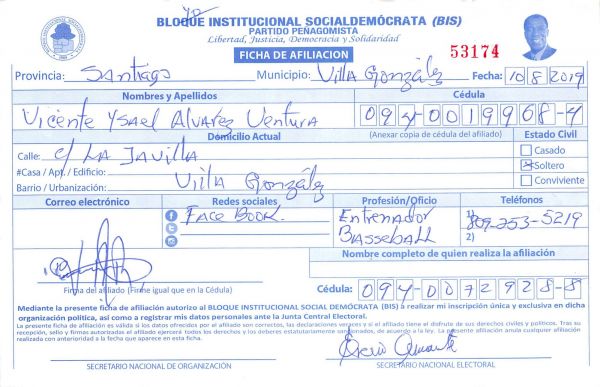 BLOQUE INSTITUCIONAL SOCIALDEMÓCRATA (BIS)
PARTIDO PEÑAGOMISTA
Libertad, Justicia, Democracia y Solidaridad
FICHA DE AFILIACION
53174
Provincia: Santiago Municipio: Villa González Fecha: 10/8/2019
Nombres y Apellidos Cédula
Vicente Ysael Alvarez Ventura 094-0019968-4
Domicilio Actual (Anexar copia de cédula del afiliado) Estado Civil
Calle: c/ LA Javilla Casado
#Casa / Apt. / Edificio: Soltero
Barrio / Urbanización: Villa González Conviviente
Correo electrónico Redes sociales Profesión/Oficio Teléfonos
Face Book. Entrenador 1) 809-253-5219
Basseball 2)
Nombre completo de quien realiza la afiliación
Firma del afiliado (Firme igual que en la Cédula) Cédula: 094-0072928-8
Mediante la presente ficha de afiliación autorizo al BLOQUE INSTITUCIONAL SOCIAL DEMÓCRATA (BIS) a realizar mi inscripción única y exclusiva en dicha
organización política, así como a registrar mis datos personales ante la Junta Central Electoral.
La presente ficha de afiliación es válida si los datos ofrecidos por el afiliado son correctos, las declaraciones veraces y si el afiliado tiene el disfrute de sus derechos civiles y políticos. Tras su
recepción, sello y firmas autorizadas el afiliado ejercerá todos los derechos y los deberes estatutariamente sancionados, de acuerdo a la ley. La presente afiliación anula cualquier afiliación
realizada con anterioridad a la fecha que aparece en esta ficha.
SECRETARIO NACIONAL DE ORGANIZACIÓN SECRETARIO NACIONAL ELECTORAL